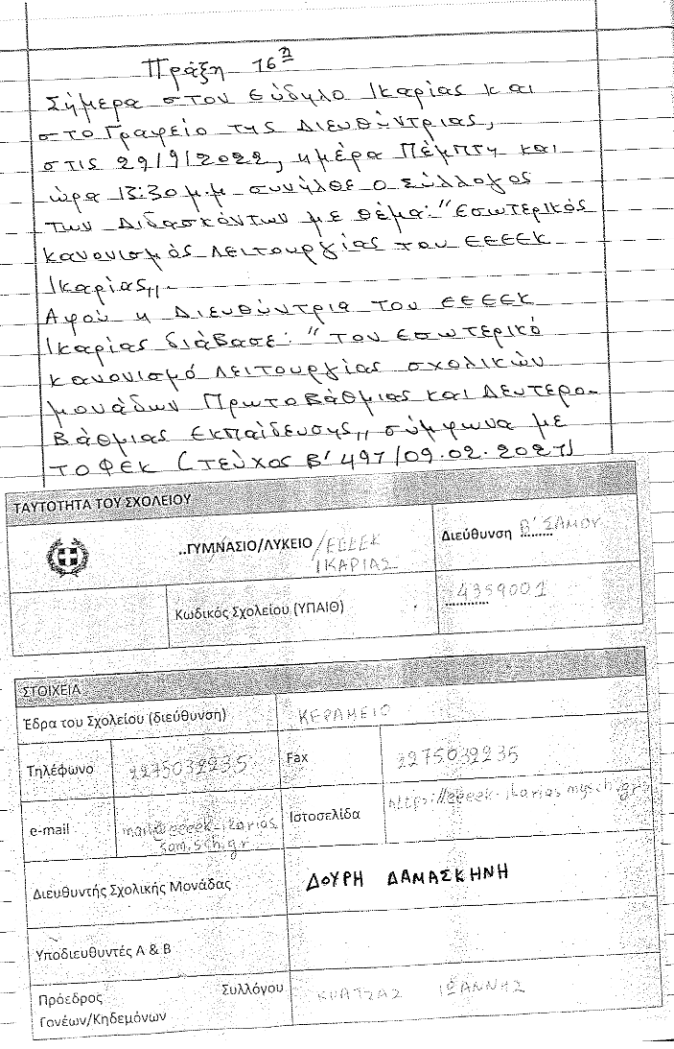 Πράξη 16η
Σήμερα στον Εύδηλο Ικαρίας και
στο Γραφείο της Διευθύντριας,
στις 29/9/2022, ημέρα Πέμπτη και
ώρα 13:30 μ.μ συνήλθε ο Σύλλογος
των Διδασκόντων με θέμα: "Εσωτερικός
κανονισμός λειτουργίας του ΕΕΕΕΚ
Ικαρίας,,.
Αφού η Διευθύντρια του ΕΕΕΕΚ
Ικαρίας διάβασε: "Τον Εσωτερικό
κανονισμό λειτουργίας σχολικών
μονάδων Πρωτοβάθμιας και Δευτερο-
βάθμιας Εκπαίδευσης,, σύμφωνα με
το ΦΕΚ (Τεύχος Β' 491/09.02.2021)
ΤΑΥΤΟΤΗΤΑ ΤΟΥ ΣΧΟΛΕΙΟΥ
..ΓΥΜΝΑΣΙΟ/ΛΥΚΕΙΟ /ΕΕΕΕΚ ΙΚΑΡΙΑΣ
Διεύθυνση Β' ΣΑΜΟΥ
Κωδικός Σχολείου (ΥΠΑΙΘ) 4359001
ΣΤΟΙΧΕΙΑ
Έδρα του Σχολείου (διεύθυνση) ΚΕΡΑΜΕΙΟ
Τηλέφωνο 2275032235 Fax 2275032235
e-mail mail@eeeek-ikarias. Ιστοσελίδα https://eeeek-ikarias.mysch.gr
sam.sch.gr
Διευθυντής Σχολικής Μονάδας ΔΟΥΡΗ ΔΑΜΑΣΚΗΝΗ
Υποδιευθυντές Α & Β
Πρόεδρος Συλλόγου
Γονέων/Κηδεμόνων ΙΩΑΝΝΗΣ